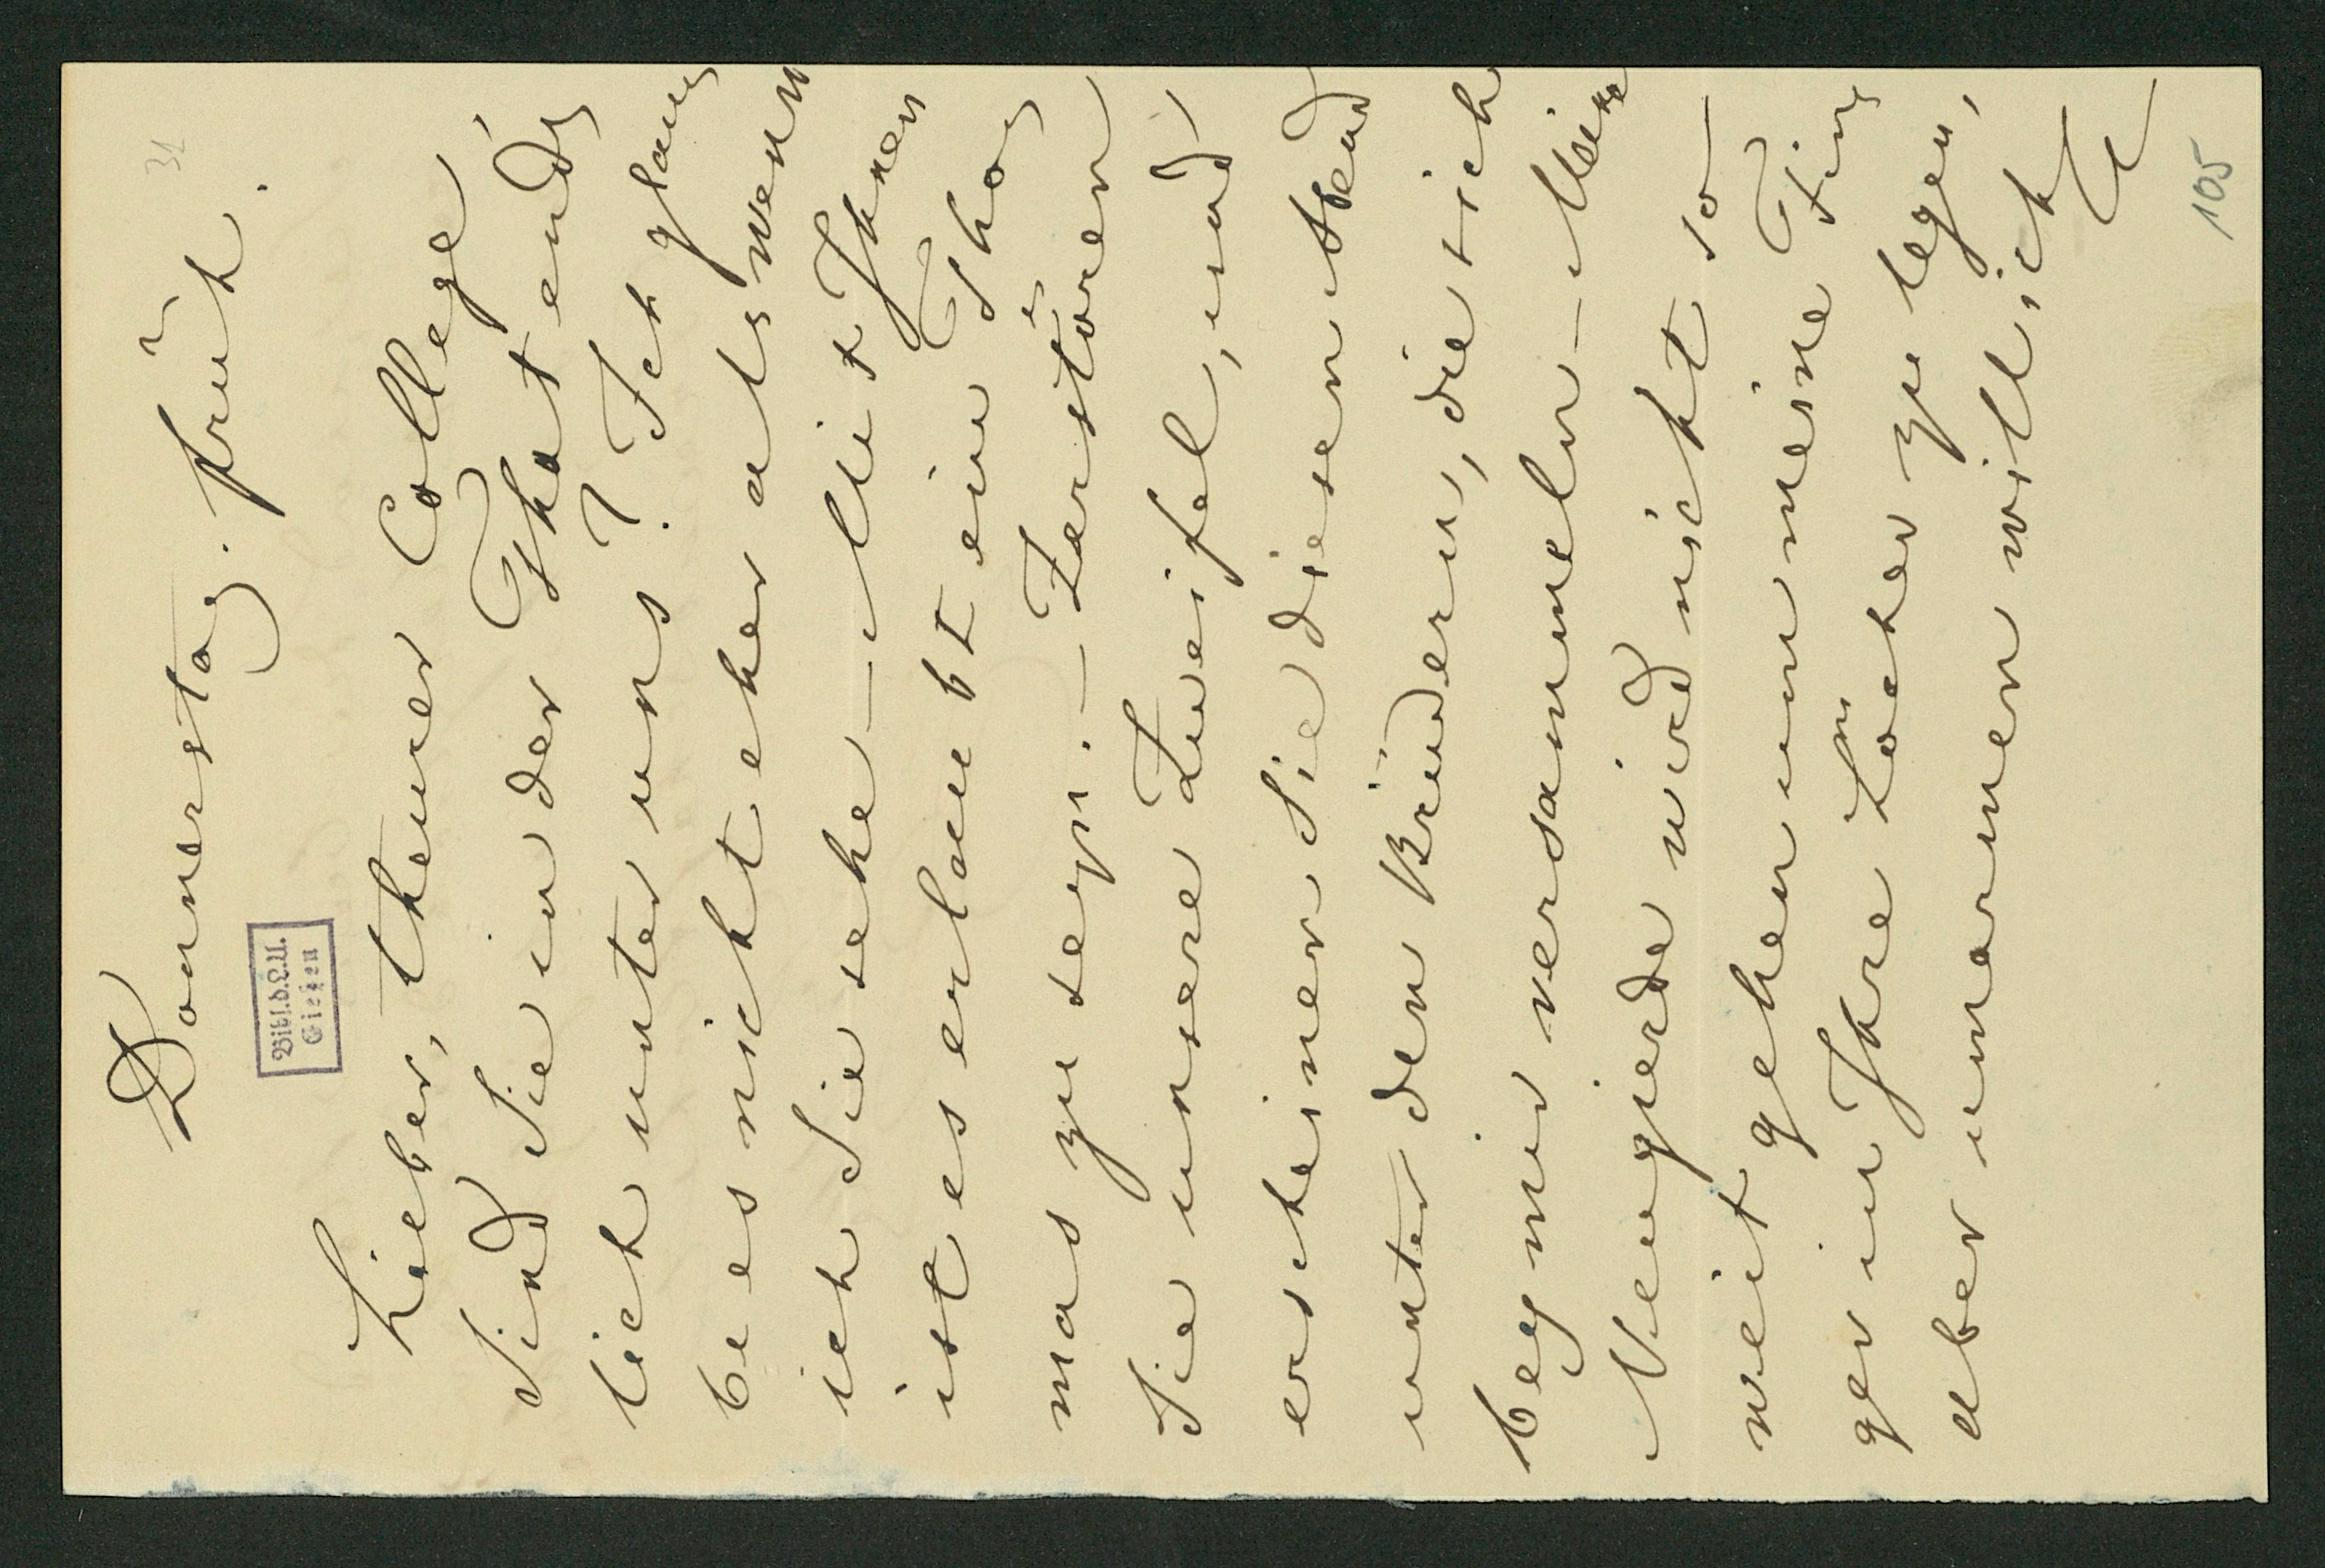 31
Donnerstag. früh.
Bibl.d.L.U.
Gießen
Lieber, theurer College,
Sind Sie in der That end
lich unter uns? Ich glau
be es nicht eher als wenn
ich Sie sehe – bis Ihnen
ist es erlaubt ein Tho
mas zu seyn. – Zerstören
Sie unsere Zweifel, und
erscheinen Sie diesen Abend
unter den Brüdern, die sich
bey mir versammeln – Meine
Neugierde wird nicht so
weit gehen um meine Fin
ger in Ihre Löcher zu legen,
aber umarmen will ich
105